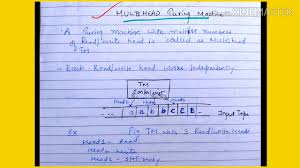 MULTIHEAD Turing Machine
KINEMASTER
A Turing machine with multiple numbers
of Read/write head is called as Multihead
TM
- Each Read/write head works independently
TM
Control Unit
Head1 Head2 Head3
a a b b C E E Input Tape
Ex Fig TM with 3 Read/write Heads
Head1 - Read
Head2 - write
Head3 - Stationary